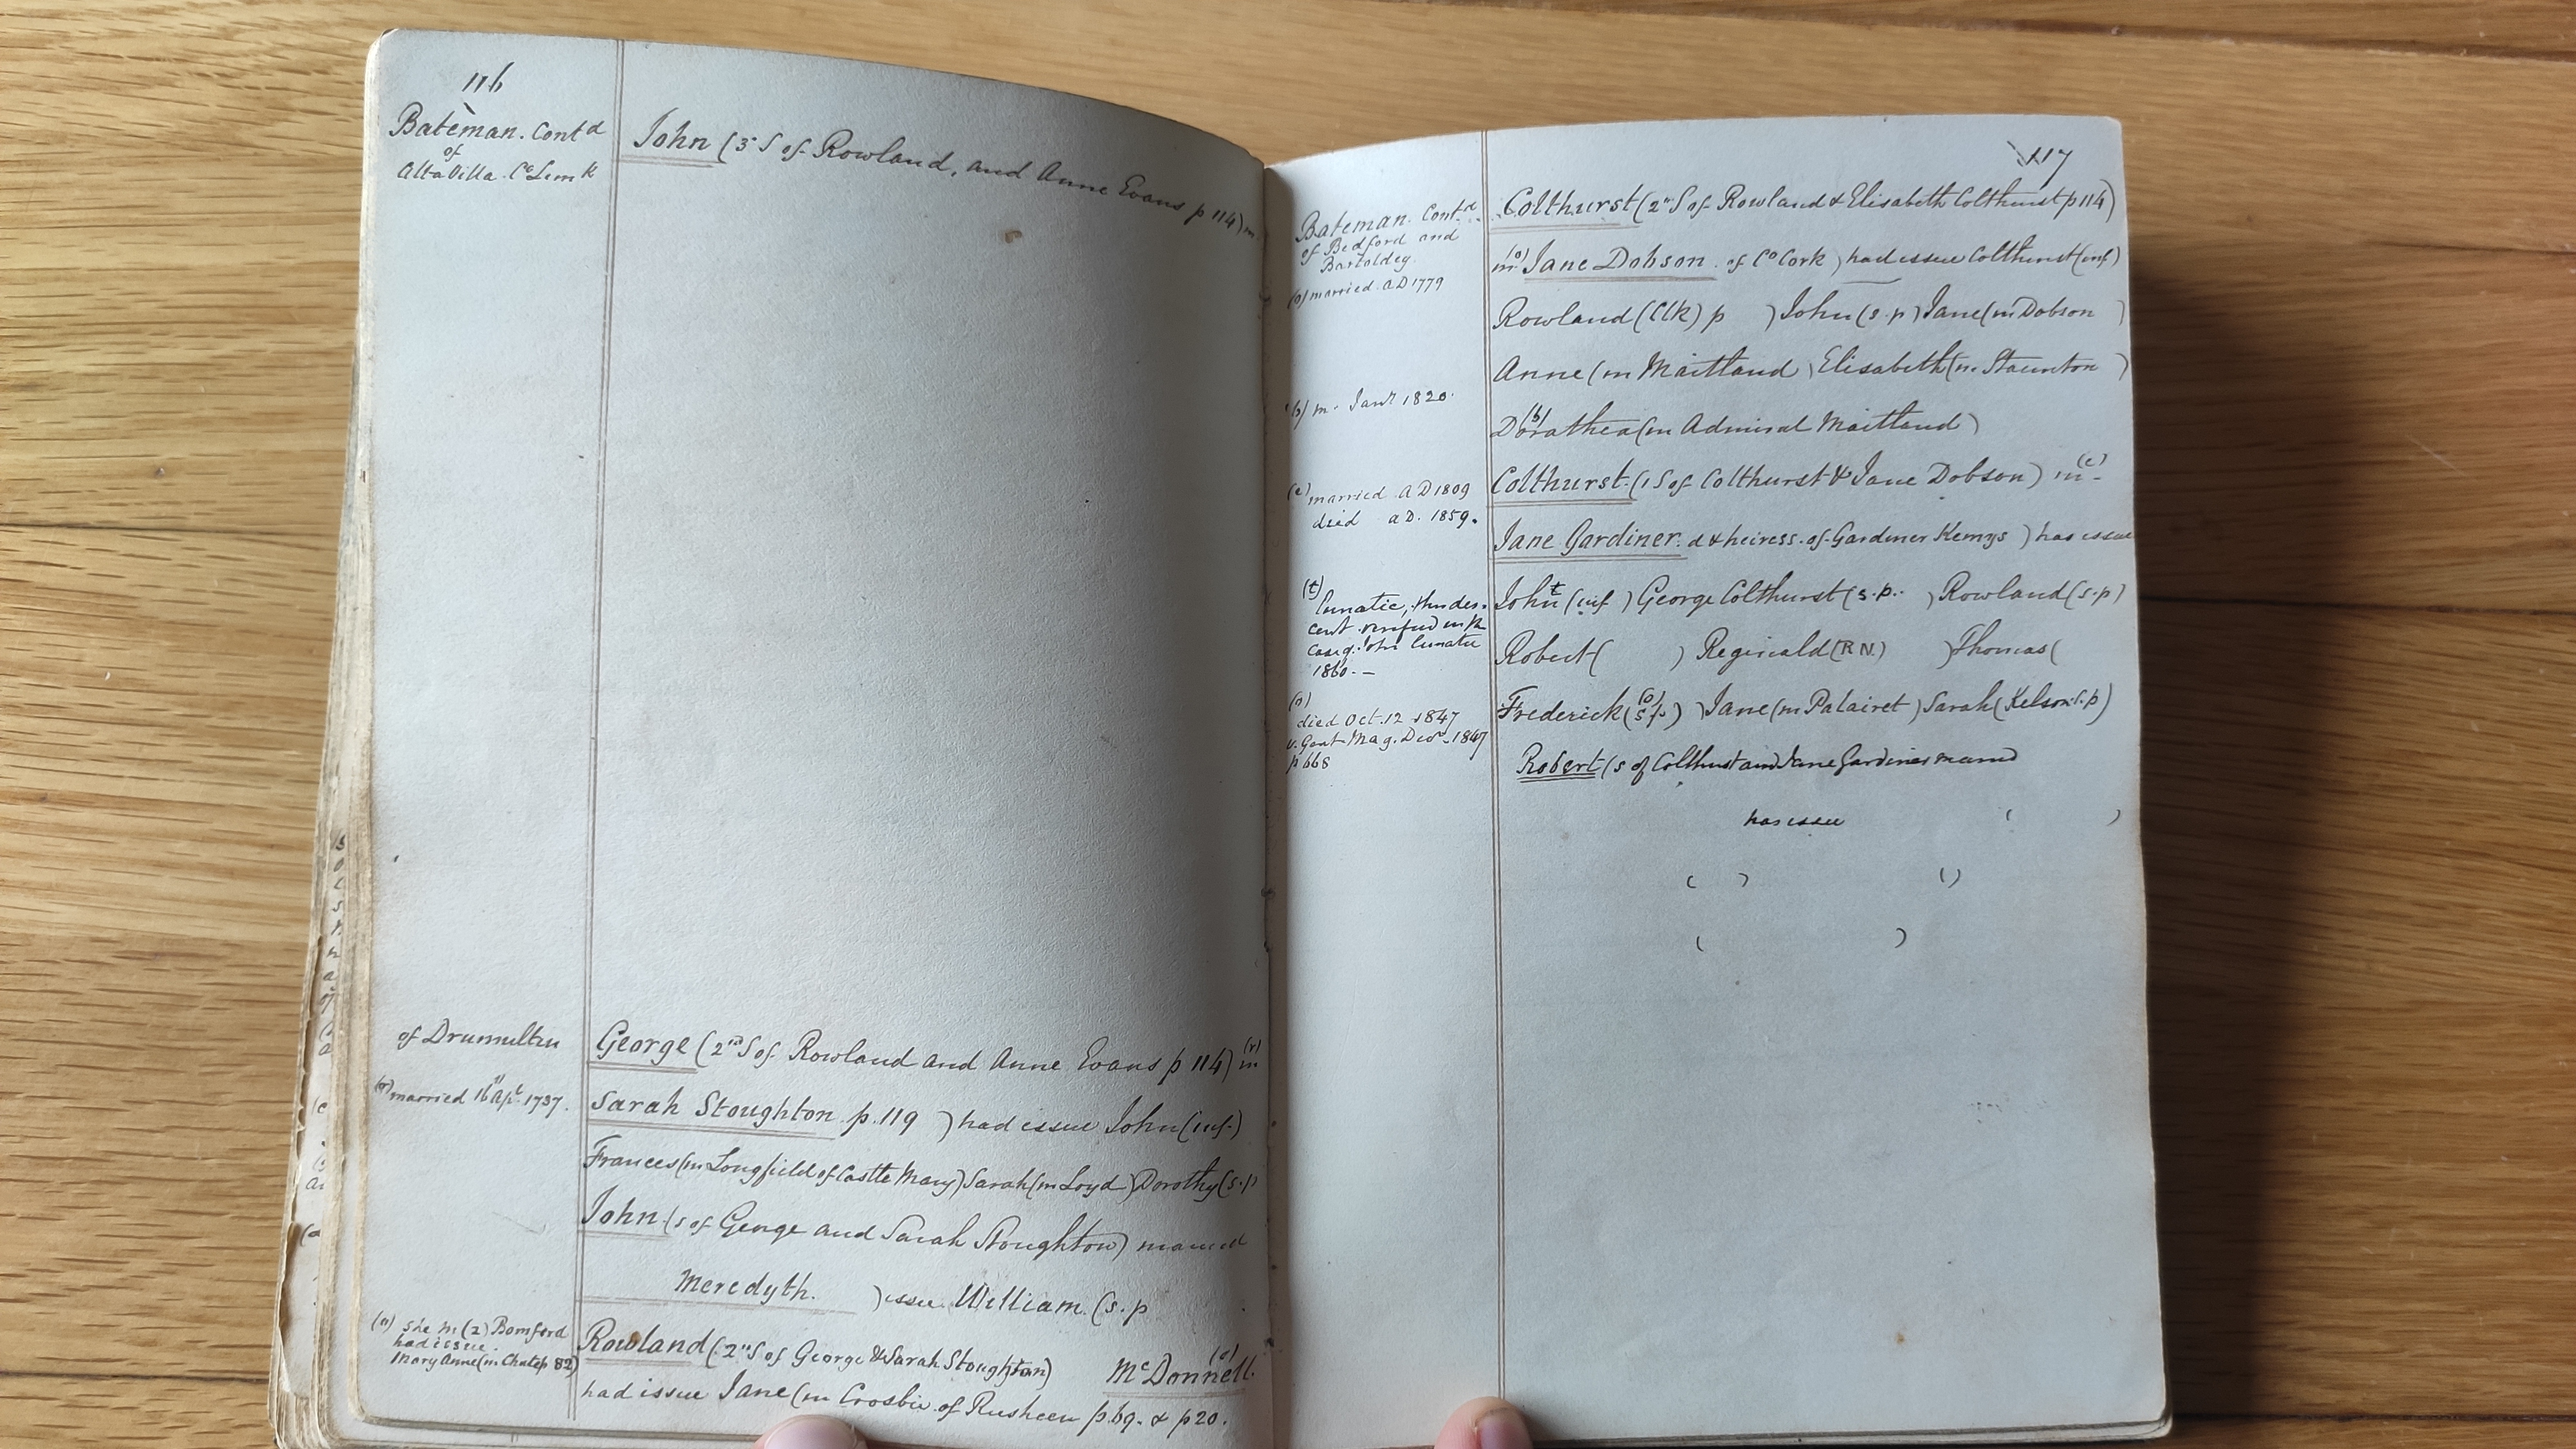 116
Bateman. Contd
of
Altavilla. Co Limk
John (3d S of Rowland, and Anne Evans p 114) m
of Drumultin
George (2nd S of Rowland and Anne Evans p 114) (r) m
(r) married 16th Apl. 1737.
Sarah Stoughton p. 119 ) had issue John (inf.)
Frances (m Longfield of Castle Mary) Sarah (m Loyd) Dorothy (s.p
John (s of George and Sarah Stoughton) married
Meredyth. ) issue William. (s.p
Rowland (2nd S of George & Sarah Stoughton) McDonnell (a)
(a) she m (2) Bomford
had issue.
Mary Anne (m Chute p 82)
had issue Jane (m Crosbie of Rusheen p. 69. & p 20.
117
Bateman. Contd
of Bedford and
Bartoldey.
(a) married. AD 1779
(b) m. Jany 1820.
(c) married. AD 1809
died aD. 1859.
(t)
lunatic, this des-
cent verified in the
case of John lunatic
1860. —
(o)
died Oct. 12 1847
v. Gent Mag. Decr. 1847
p 668
Colthurst (2nd S of Rowland & Elisabeth Colthurst p 114)
m (a) Jane Dobson of Co Cork ) had issue Colthurst (inf)
Rowland (Clk) p ) John (s.p) Jane (m Dobson )
Anne (m Maitland ) Elisabeth (m. Staunton )
(b) Dorathea (m Admiral Maitland)
Colthurst. (1 S of Colthurst & Jane Dobson) m (c)
Jane Gardiner. d & heiress. of Gardiner Kemys ) has issue
John t (inf ) George Colthurst (s.p. ) Rowland (s.p)
Robert ( ) Reginald (RN.) ) Thomas (
Frederick (o) (s p.) ) Jane (m Palairet ) Sarah (Kelson s.p)
Robert (s of Colthurst and Jane Gardiner married
has issue ( )
( ) ( )
( )